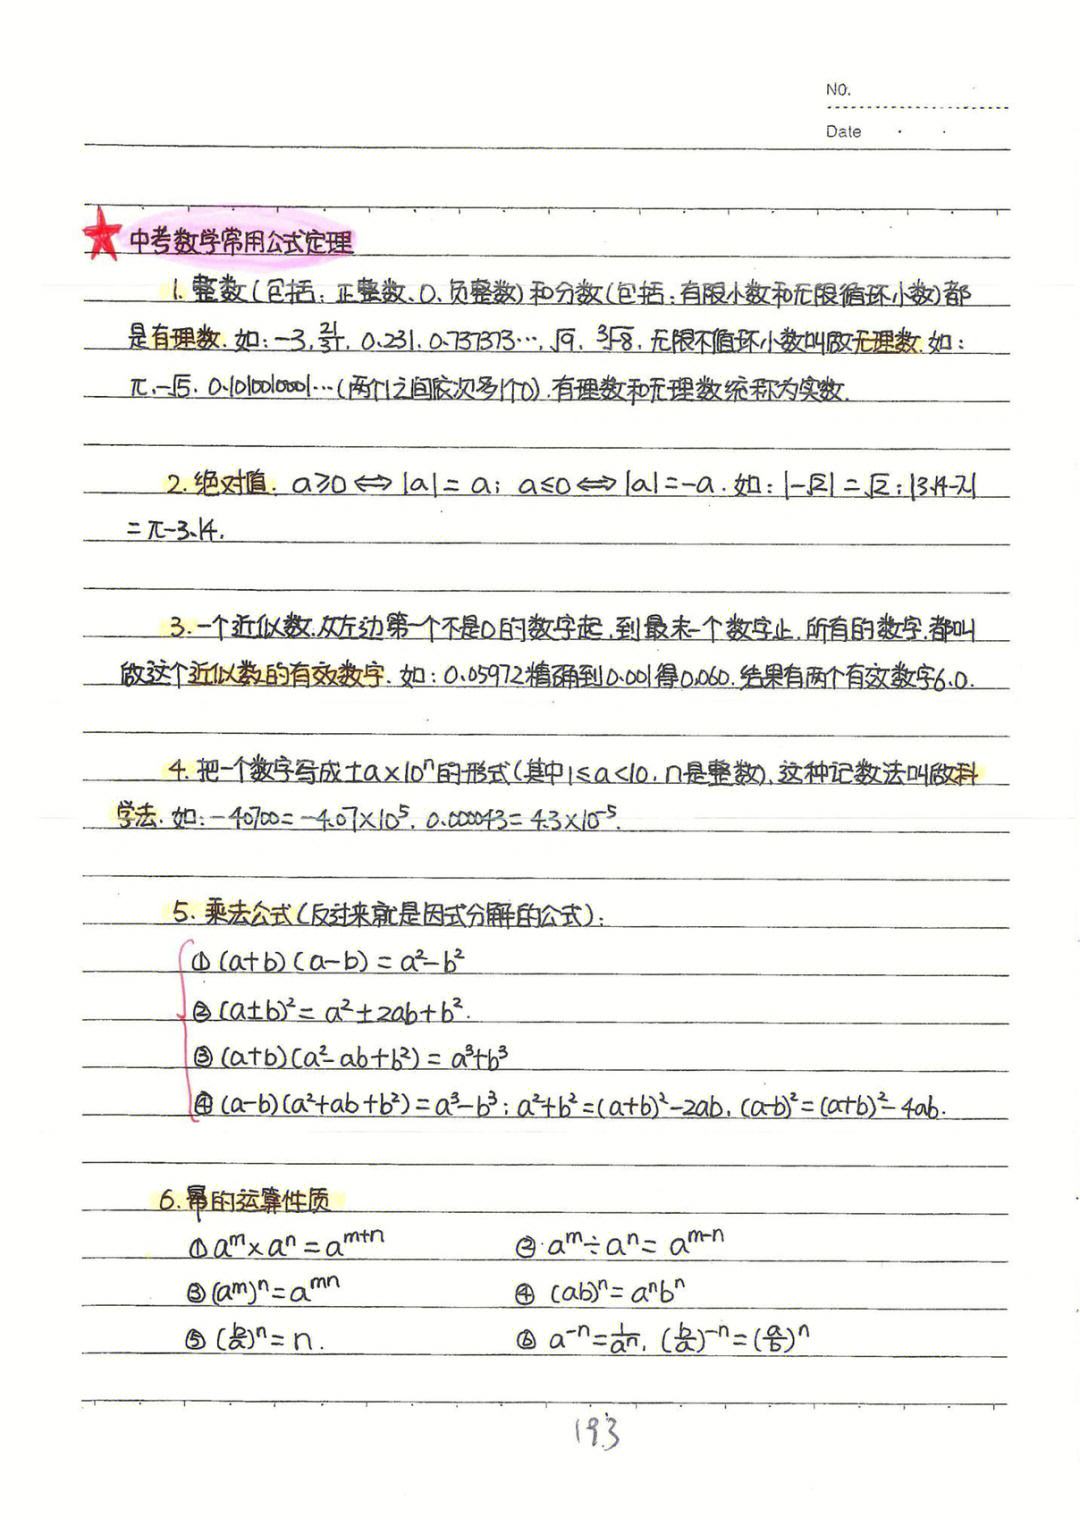 NO.
Date
中考数学常用公式定理
1. 整数(包括:正整数、0、负整数)和分数(包括:有限小数和无限循环小数)都
是有理数. 如: -3, 21/37, 0.231, 0.737373…, √9, ³√-8. 无限不循环小数叫做无理数. 如:
π, -√5, 0.1010010001…(两个1之间依次多1个0). 有理数和无理数统称为实数.
2. 绝对值: a≥0 ⟺ |a| = a; a≤0 ⟺ |a| = -a. 如: |-√2| = √2; |3.14-π|
= π-3.14.
3. 一个近似数, 从左边第一个不是0的数字起, 到最末一个数字止, 所有的数字, 都叫
做这个近似数的有效数字. 如: 0.05972精确到0.001得0.060. 结果有两个有效数字6.0.
4. 把一个数字写成±a×10ⁿ的形式(其中1≤a<10, n是整数), 这种记数法叫做科
学法. 如: -40700 = -4.07×10⁵, 0.000043 = 4.3×10⁻⁵.
5. 乘法公式(反过来就是因式分解的公式):
① (a+b)(a-b) = a²-b²
② (a±b)² = a²±2ab+b².
③ (a+b)(a²-ab+b²) = a³+b³
④ (a-b)(a²+ab+b²) = a³-b³; a²+b² = (a+b)²-2ab, (a-b)² = (a+b)²-4ab.
6. 幂的运算性质
① aᵐ×aⁿ = aᵐ⁺ⁿ ② aᵐ÷aⁿ = aᵐ⁻ⁿ
③ (aᵐ)ⁿ = aᵐⁿ ④ (ab)ⁿ = aⁿbⁿ
⑤ (b/a)ⁿ = n. ⑥ a⁻ⁿ = 1/aⁿ, (b/a)⁻ⁿ = (a/b)ⁿ
193